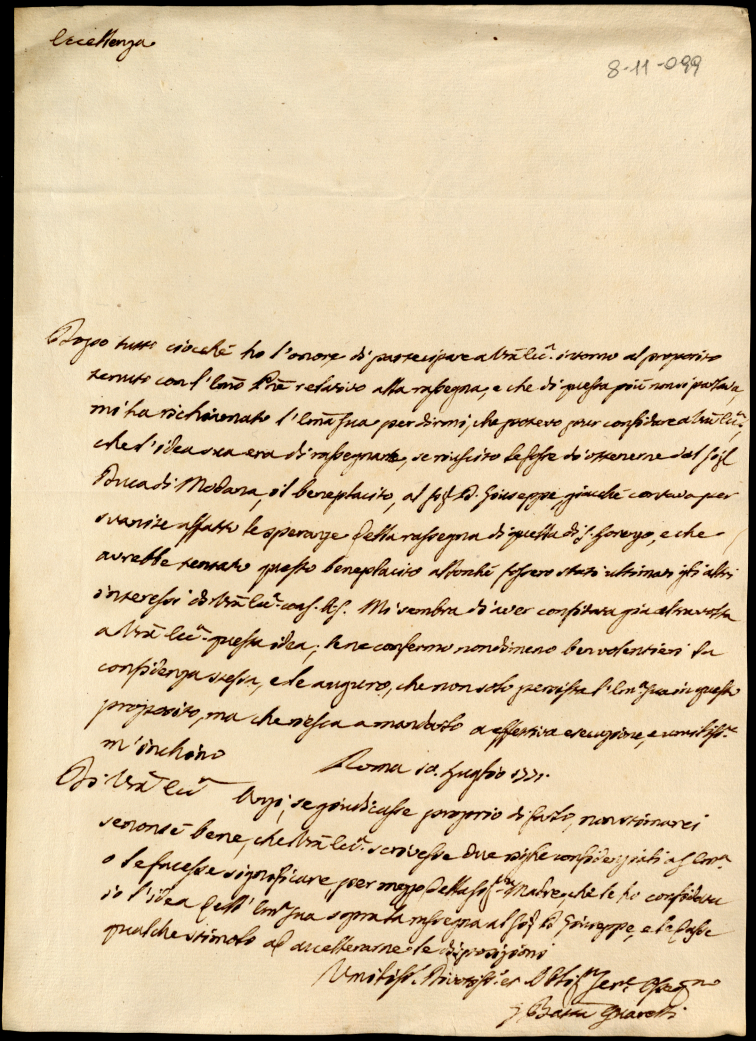 Eccellenza
8-11-099
Dopo tutto ciocchè ho l'onore di partecipare a Vrã Ecc.ª intorno al proposito
tenuto con l'Emõ Prẽ relativo alla rassegna, e che di questa più non si parlava,
mi ha richiamato l'Emã Sua per dirmi, che potevo pur confidare a Vrã Ecc.ª,
che l'idea sua era di rassegnare, se riuscito le fosse di ottenerne dal Sigr
Duca di Modana, il beneplacito, al Sigr D. Giuseppe, giacchè contava per
svanite affatto le speranze della rassegna di questa di S. Lorenzo, e che
avrebbe tentato questo beneplacito allorchè fossero stati ultimati gli altri
interessi di Vrã Ecc.ª con S. A. S. Mi sembra di aver confidata già altra volta
a Vrã Ecc.ª questa idea; le ne confermo nondimeno ben volentieri la
confidenza stessa, e le auguro, che non solo persista l'Emª Sua in questo
proposito, ma che riesca a mandarlo a effettiva esecuzione, e umiliss.e
m'inchino
Roma 10. Luglio 1771.
Di Vrã Ecc.ª
Anzi, se giudicasse proprio di farlo, non stimarei
senonsè bene, che Vrã Ecc.ª scrivesse due righe confidenziali a S. Emª.
o le facesse significare per mezzo della Sigª Madre, che le ho confidata
io l'idea dell'Emª Sua sopra la rassegna al Sigr D. Giuseppe, e le dasse
qualche stimolo ad accellerarne le disposizioni
Umiliss. Divotiss. ed Obblig. Serv. Osseq.mo
G. Batta